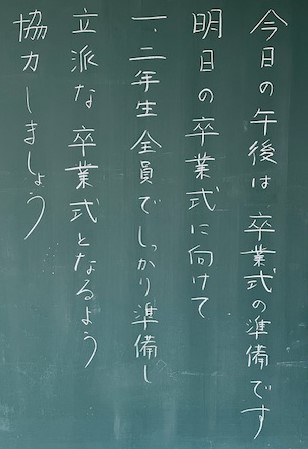 今日の午後は卒業式の準備です
明日の卒業式に向けて
一、二年生全員でしっかり準備し
立派な卒業式となるよう
協力しましょう